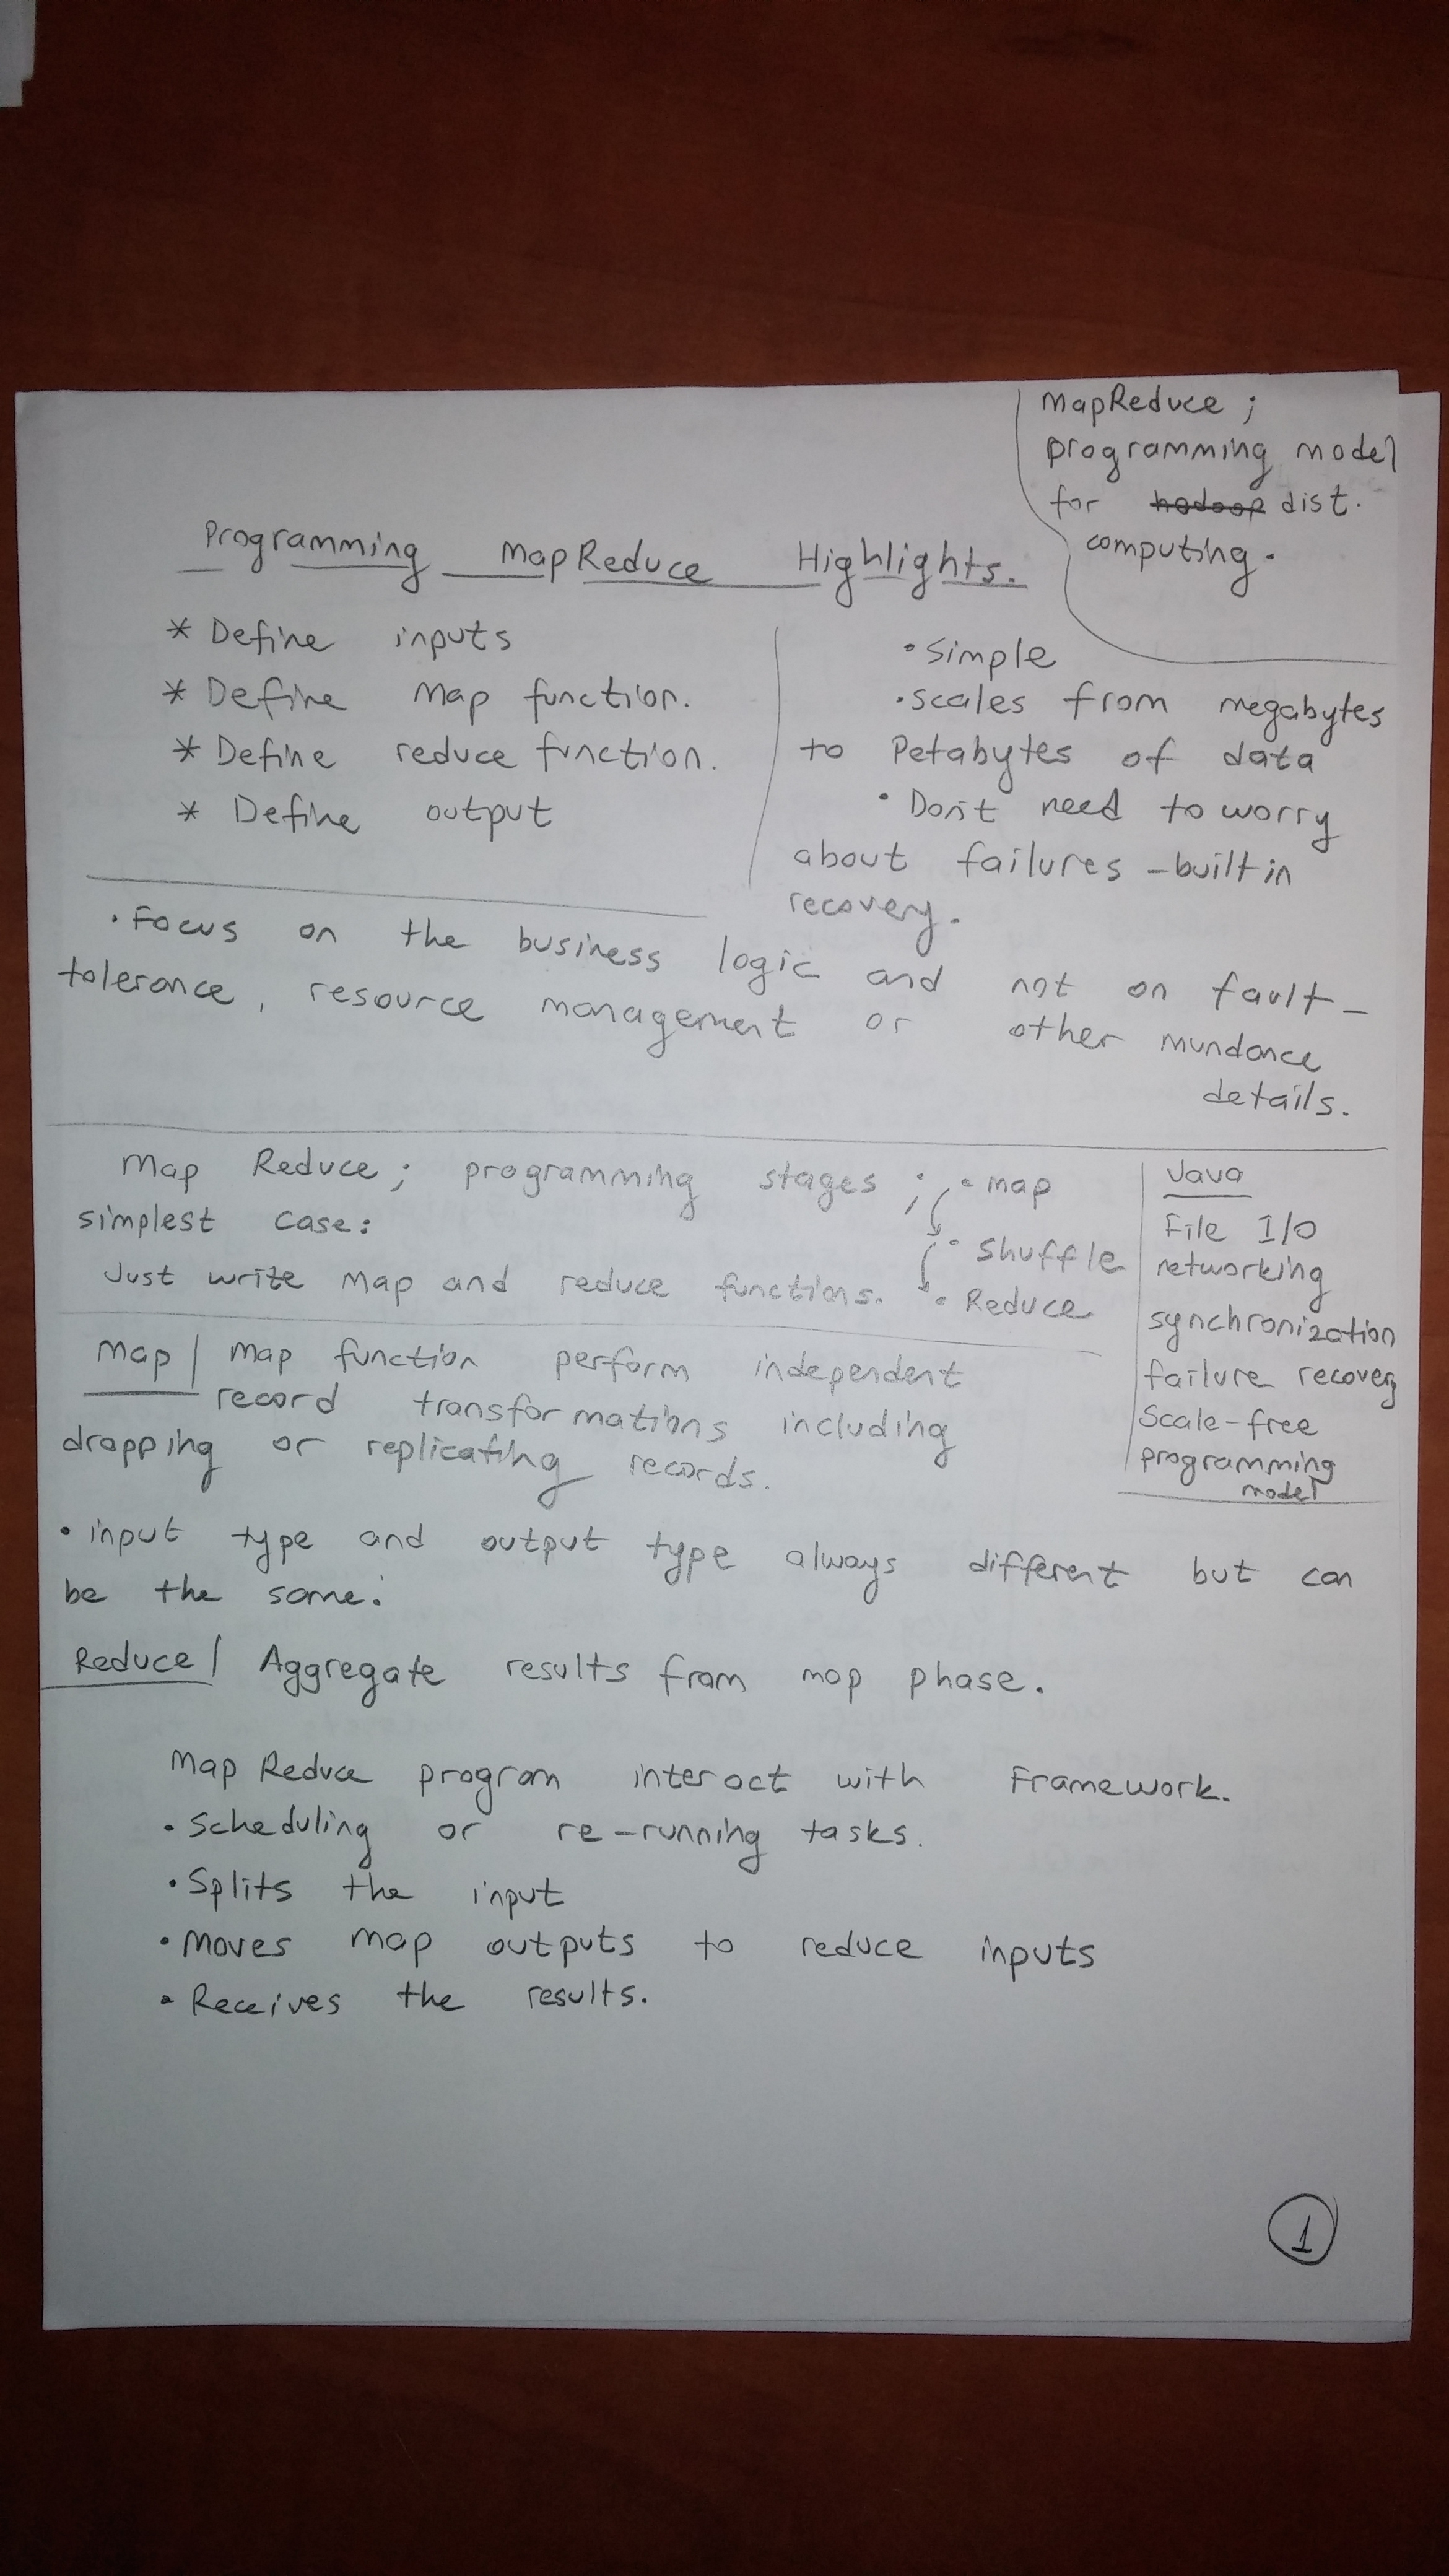 MapReduce ;
programming model
for hadoop dist.
computing.
Programming MapReduce Highlights.
* Define inputs
* Define Map function.
* Define reduce function.
* Define output
• Simple
• scales from megabytes
to Petabytes of data
• Don't need to worry
about failures - built in
recovery.
• Focus on the business logic and not on fault-
tolerance, resource management or other mundance
details.
Map Reduce; programming stages ; • map
simplest case:
• Shuffle
Just write Map and reduce functions. • Reduce
Java
File I/O
networking
synchronization
failure recovery
Scale-free
programming
model
Map | Map function perform independent
record transformations including
dropping or replicating records.
• input type and output type always different but can
be the same.
Reduce | Aggregate results from map phase.
Map Reduce program interact with Framework.
• Scheduling or re-running tasks.
• Splits the input
• Moves map outputs to reduce inputs
• Receives the results.
1